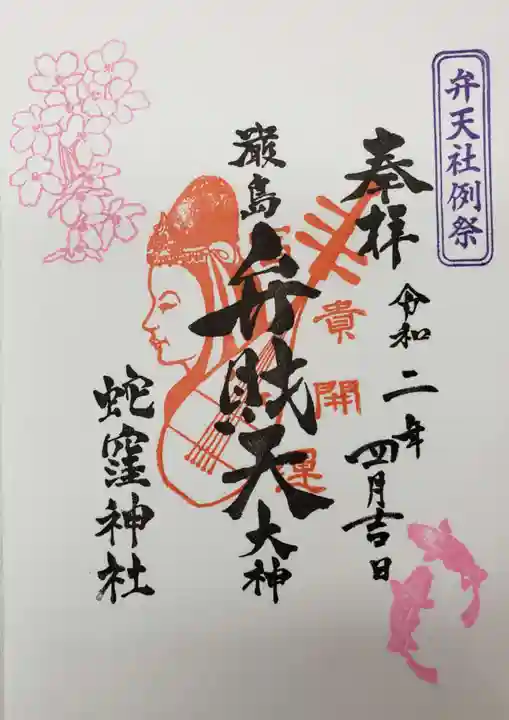 弁天社例祭
奉拝
令和二年四月吉日
貴開運
厳島
弁財天
大神
蛇窪神社